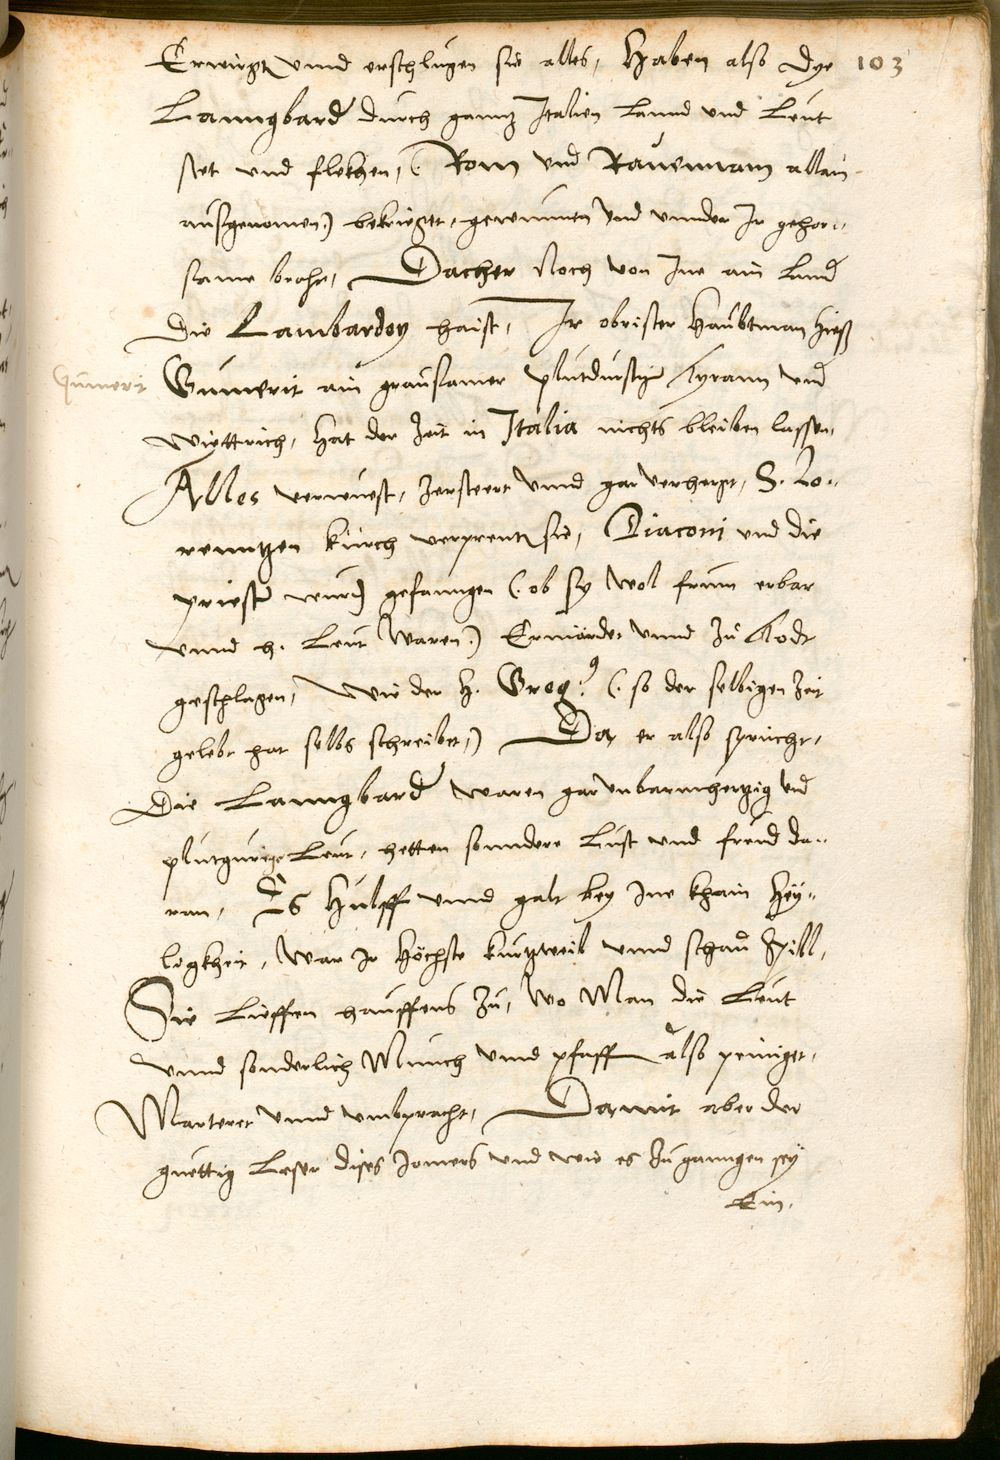 103
Erwirgt vnnd erschlugen sie alles, Haben also dye
Lanngbard durch gannz Italien Lannd vnd Leut
stet vnd flekhen, (: Rom vnd Rauennam allain
ausgenomen:) bekrieget, gewunnen vnd vnnder Ir gehor-
same brahr, Dacher noch von Ine ain Land
die Lambardey haist, Ir obrister Haubtman hieß
Gumerit
Gumerit ain grausamer plutdurstiger Tyrann vnd
wiettrich, hat der Zeit in Italia nichts bleiben lassen,
Alles verwuest, Zersteert vnnd gar verhergt, S. Lo-
renntzen kürch verprent sie, Diaconi vnd die
priester wurden gefanngen (: ob sy wol frum erbar
vnnd h. Leut waren:) Ermördet vnnd Zu Todt
geschlagen, Wie der H. Greg: (: so der selbigen Zeit
gelebt hat selbs schreibet,) Da er also spricht,
Die Lanngbard waren gar vnbarmhertzig vnd
plutgürige Leut, hetten sonndere Lust vnd freud da-
ran, Es Hulff vnnd galt bey Ine khain Hey-
ligkheit, War Ir Höchste kurtzweil vnnd schau spill,
Sie Lieffen hauffens Zu, Wo Man die Leut
vnnd sonderlich Münch vnnd pfaffen also peiniget,
Marteret vnnd vmbpracht, Damit aber der
guettig Leser dises Jomers vnd wie es Zuganngen sey
Ein.